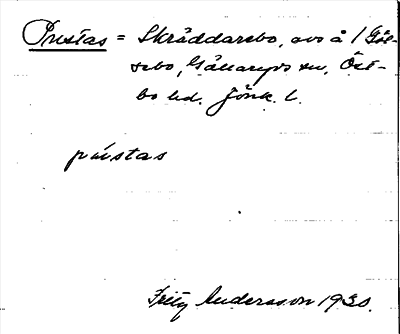 Prustas = Skräddarebo, avs å 1 Göl-
sebo, Gällaryds sn, Öst-
bo hd. Jönk. l.
prústas
Fritz Andersson 1930.